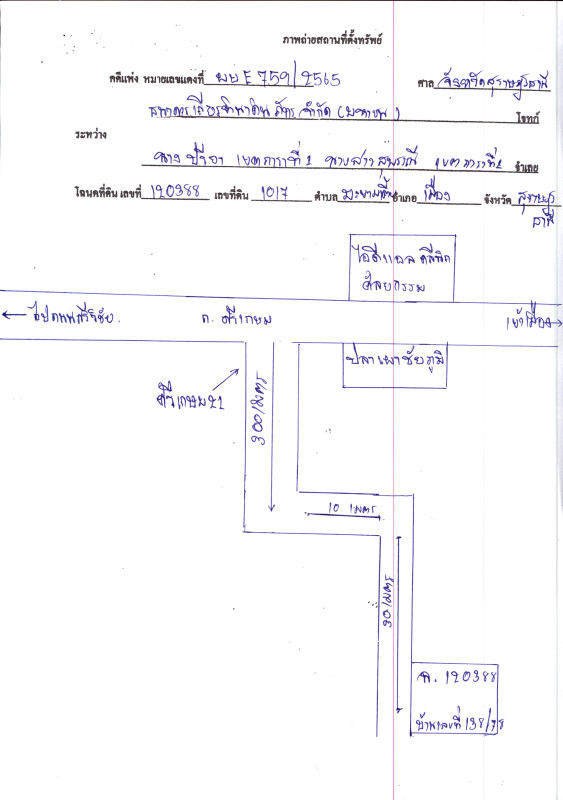 ภาพถ่ายสถานที่ตั้งทรัพย์
คดีแพ่ง หมายเลขแดงที่ ผบE 759/2565 ศาล จังหวัดสุราษฎร์ธานี
ธนาคารเกียรตินาคินภัทร จำกัด (มหาชน) โจทก์
ระหว่าง
นาง ปัจจา ที่ 1 นางสาว ที่ 2 จำเลย
โฉนดที่ดิน เลขที่ 120388 เลขที่ดิน 1017 ตำบล มะขามเตี้ย อำเภอ เมือง จังหวัด สุราษฎร์
ธานี
ไอดีแอล คลีนิค
ศัลยกรรม
← ไปถนนศรีวิชัย
ถ. ศรีเกษม
เข้าเมือง →
ปลาเผาชัยภูมิ
ศรีเกษม 21
300 เมตร
10 เมตร
30 เมตร
ฉ. 120388
บ้านเลขที่ 138/78